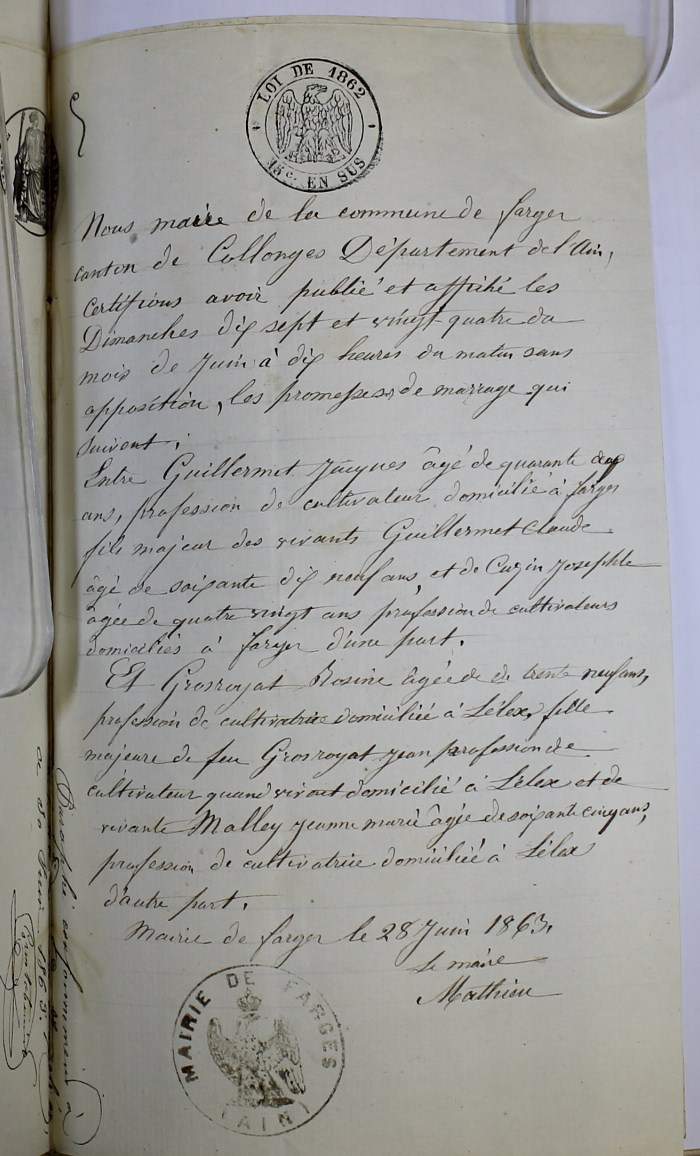 LOI DE 1862
15c. EN SUS
Nous maire de la commune de farges
canton de Collonges Département de l'Ain,
certifions avoir publié et affiché les
Dimanches dix sept et vingt quatre du
mois de Juin à dix heures du matin sans
opposition, les promesses de mariage qui
suivent;
Entre Guillermet Jacques âgé de quarante
ans, profession de cultivateur domicilié à farges
fils majeur des vivants Guillermet Claude
âgé de soixante dix neuf ans, et de Cuzin Josephte
âgée de quatre vingt ans profession de cultivateurs
domiciliés à farges d'une part.
Et Grosroyat Rosine âgée de trente neuf ans,
profession de cultivatrice domiciliée à Lélex, fille
majeure de feu Grosroyat Jean profession de
cultivateur quand vivant domicilié à Lélex et de
vivante Malley Jeanne marie âgée de soixante cinq ans,
profession de cultivatrice domiciliée à Lélex
d'autre part.
Mairie de farges le 28 Juin 1863.
Le maire
Mathieu
MAIRIE DE FARGES
(AIN)